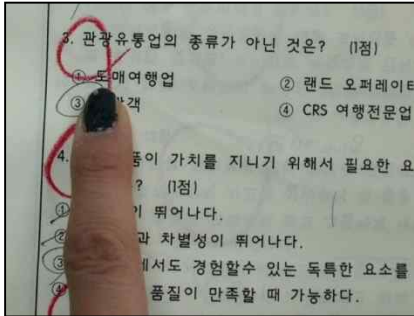 3. 관광유통업의 종류가 아닌 것은? (1점)
① 도매여행업 ② 랜드 오퍼레이터
③ 객 ④ CRS 여행전문업
4. 품이 가치를 지니기 위해서 필요한 요
? (1점)
① 이 뛰어나다.
② 과 차별성이 뛰어나다.
③ 에서도 경험할수 있는 독특한 요소를
④ 품질이 만족할 때 가능하다.